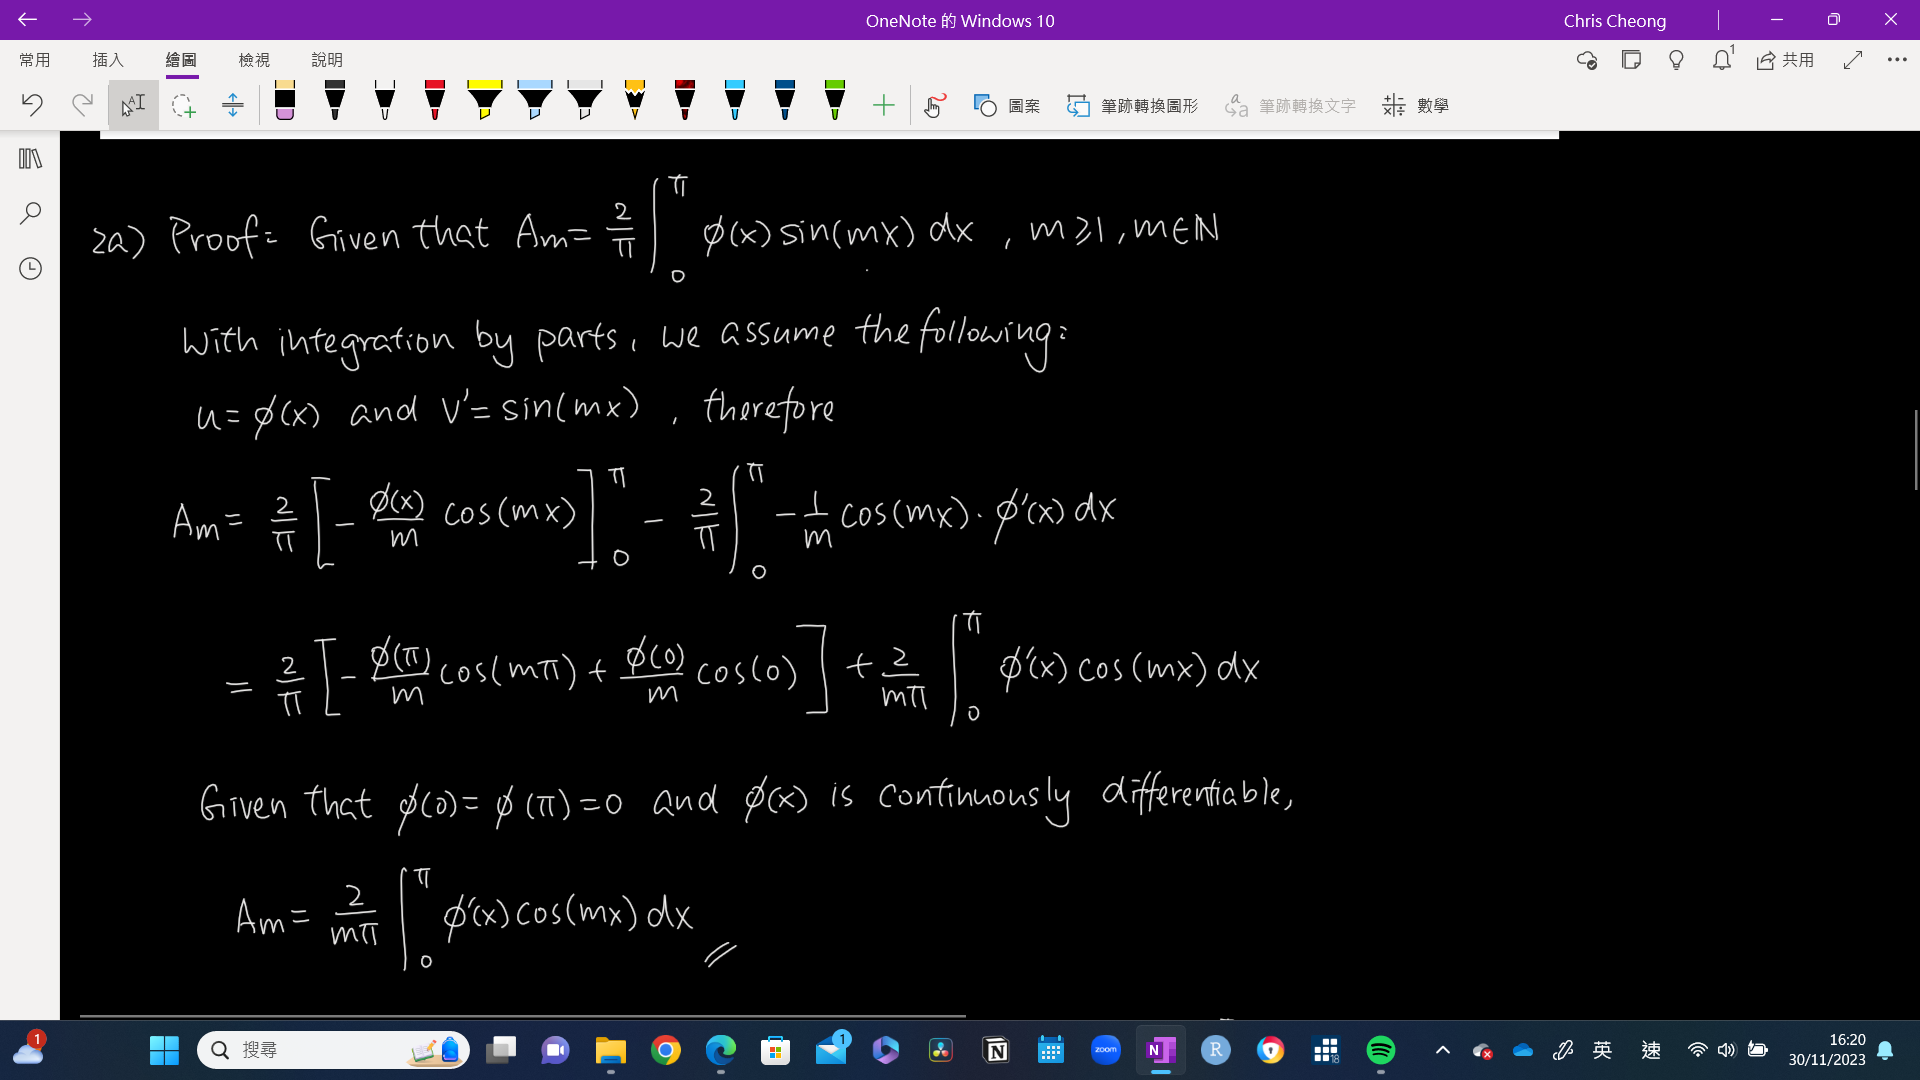 OneNote 的 Windows 10
Chris Cheong
常用 插入 繪圖 檢視 說明
1
共用
圖案 筆跡轉換圖形 筆跡轉換文字 數學
2a) Proof: Given that Am = 2/π ∫₀^π ϕ(x) sin(mx) dx , m ≥ 1, m ∈ ℕ
With integration by parts, we assume the following:
u = ϕ(x) and v' = sin(mx) , therefore
Am = 2/π [ - ϕ(x)/m cos(mx) ]₀^π - 2/π ∫₀^π - 1/m cos(mx) · ϕ'(x) dx
= 2/π [ - ϕ(π)/m cos(mπ) + ϕ(0)/m cos(0) ] + 2/mπ ∫₀^π ϕ'(x) cos(mx) dx
Given that ϕ(0) = ϕ(π) = 0 and ϕ(x) is continuously differentiable,
Am = 2/mπ ∫₀^π ϕ'(x) cos(mx) dx //
1
搜尋
1
zoom
N
R
18
英
速
16:20
30/11/2023